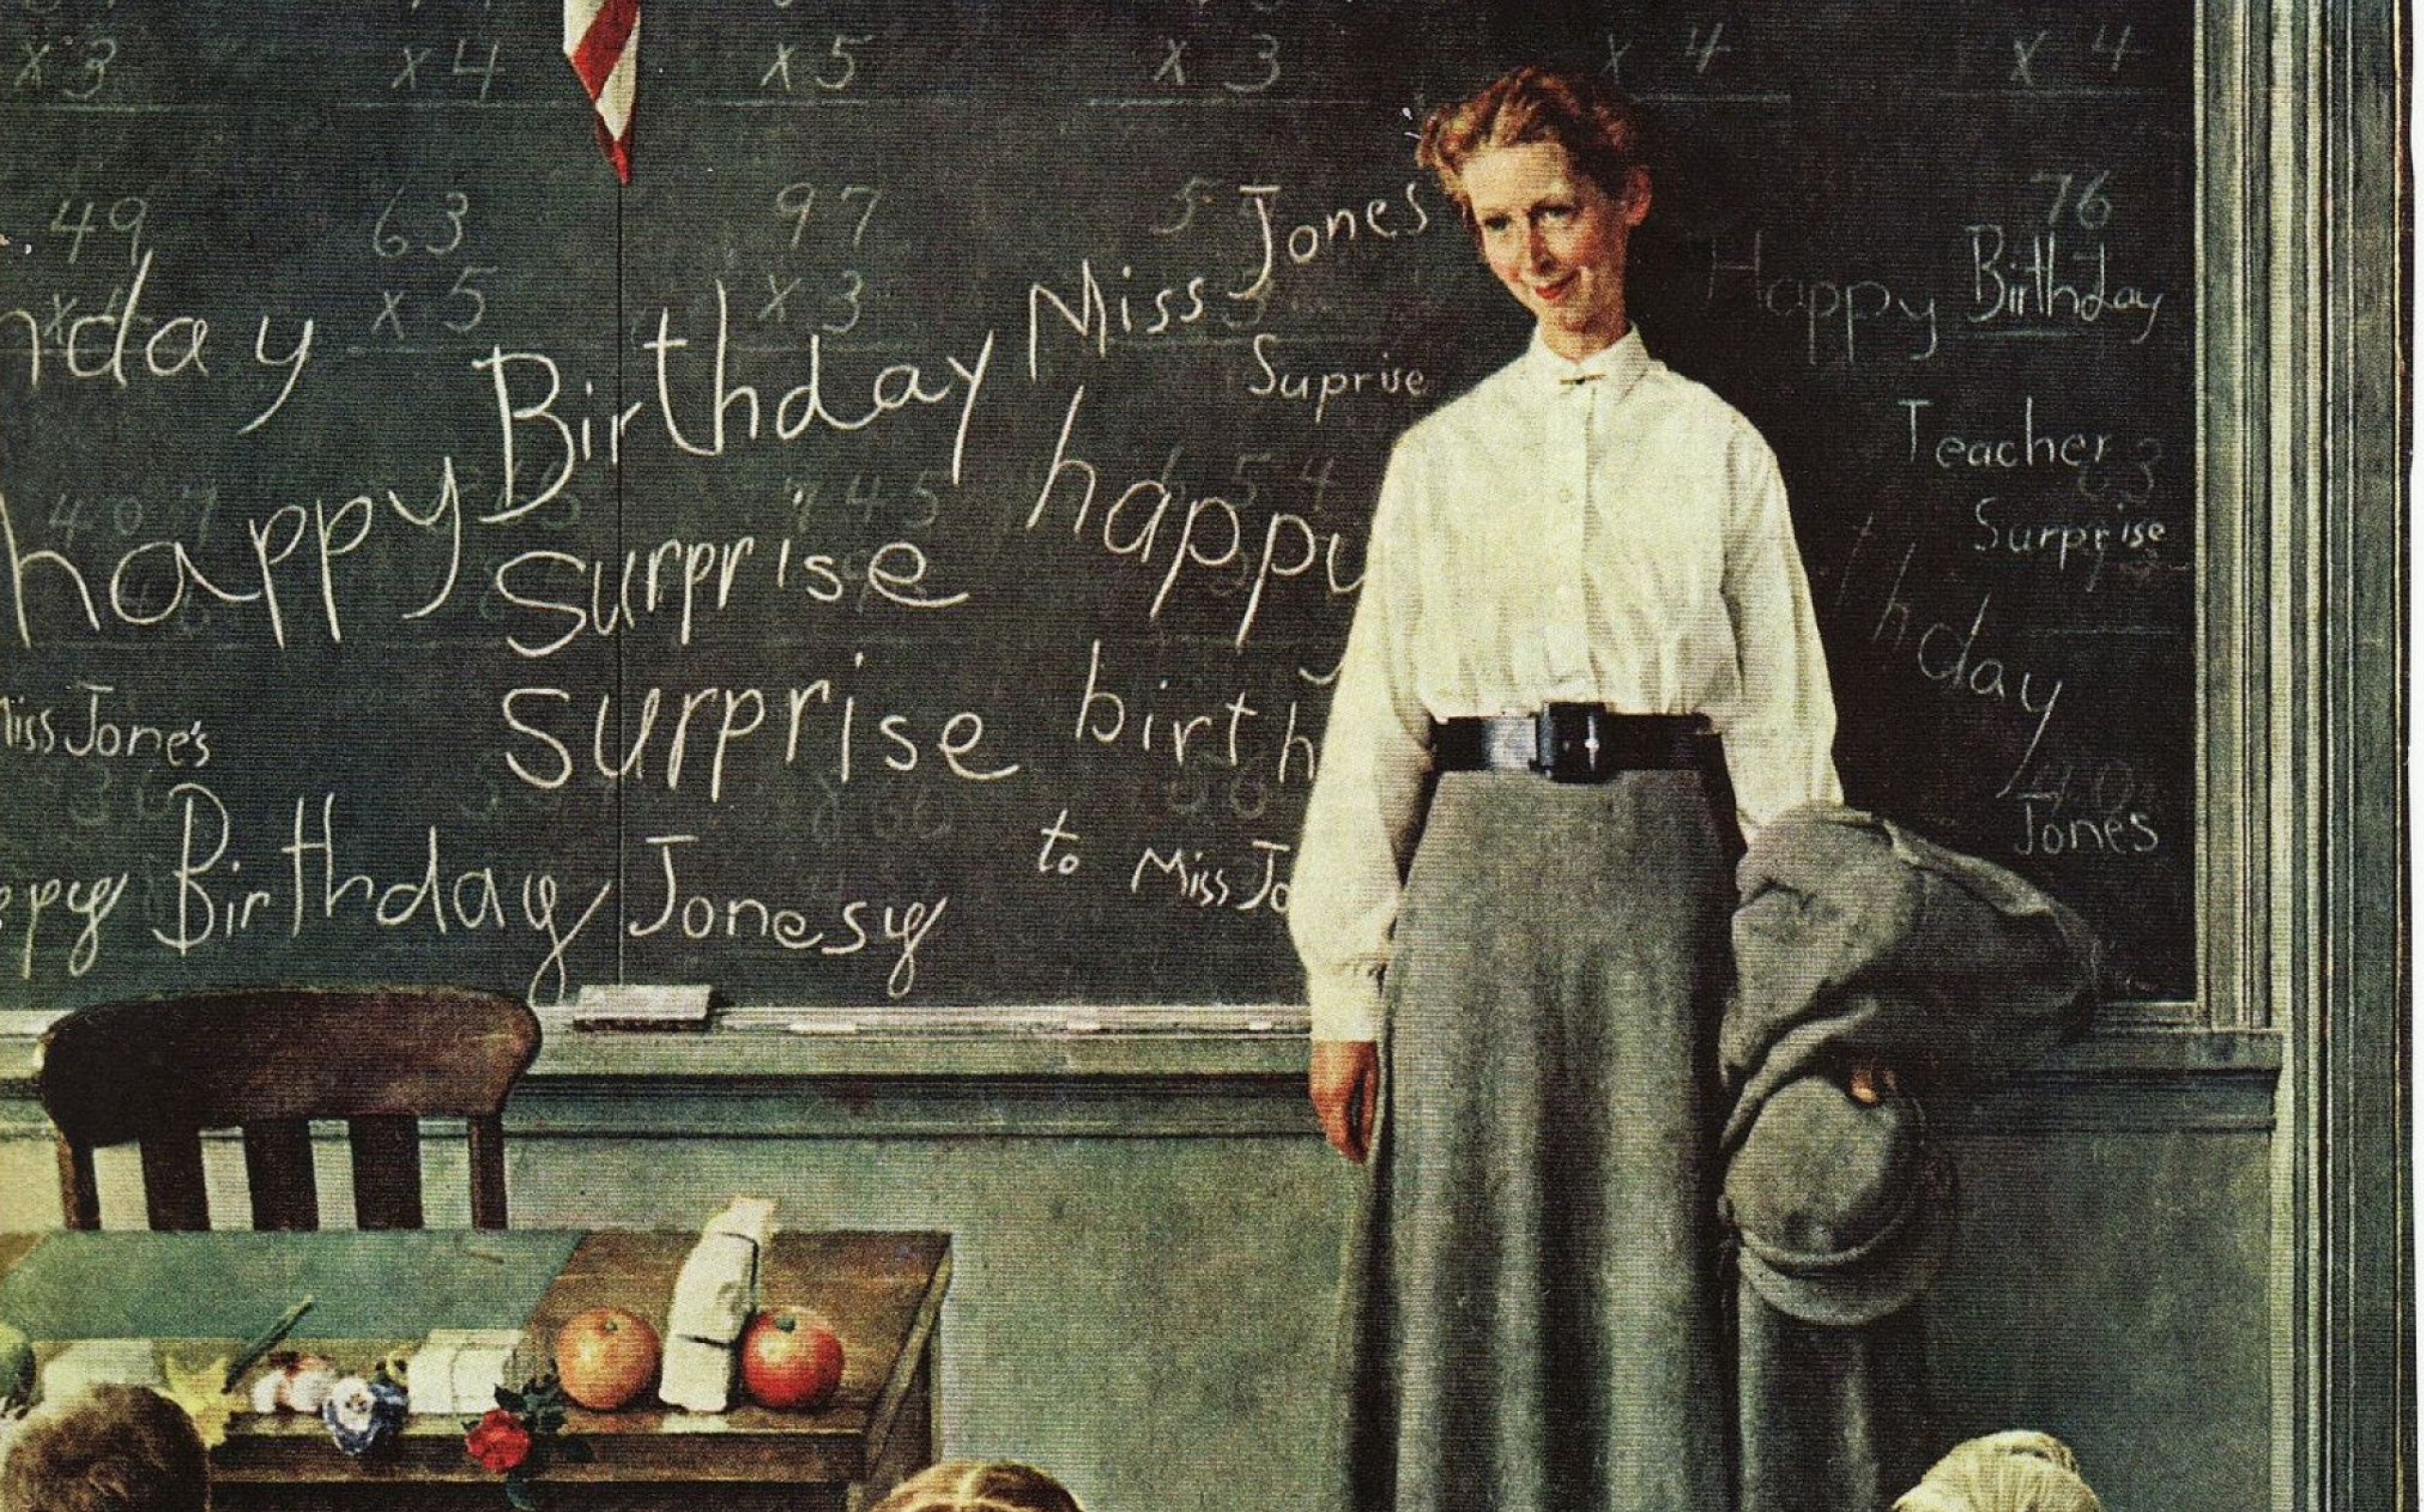 x 3 x 4 x 5 x 3 x 4 x 4
49 63 97 5 76
x x 5 x 3 3
hday
Birthday
Miss Jones
Suprise
Happy Birthday
happy
Surprise
happy
Teacher
Surprise
Miss Jone's
surprise
birth
thday
ppy Birthday Jonesy
to Miss Jo
Jones